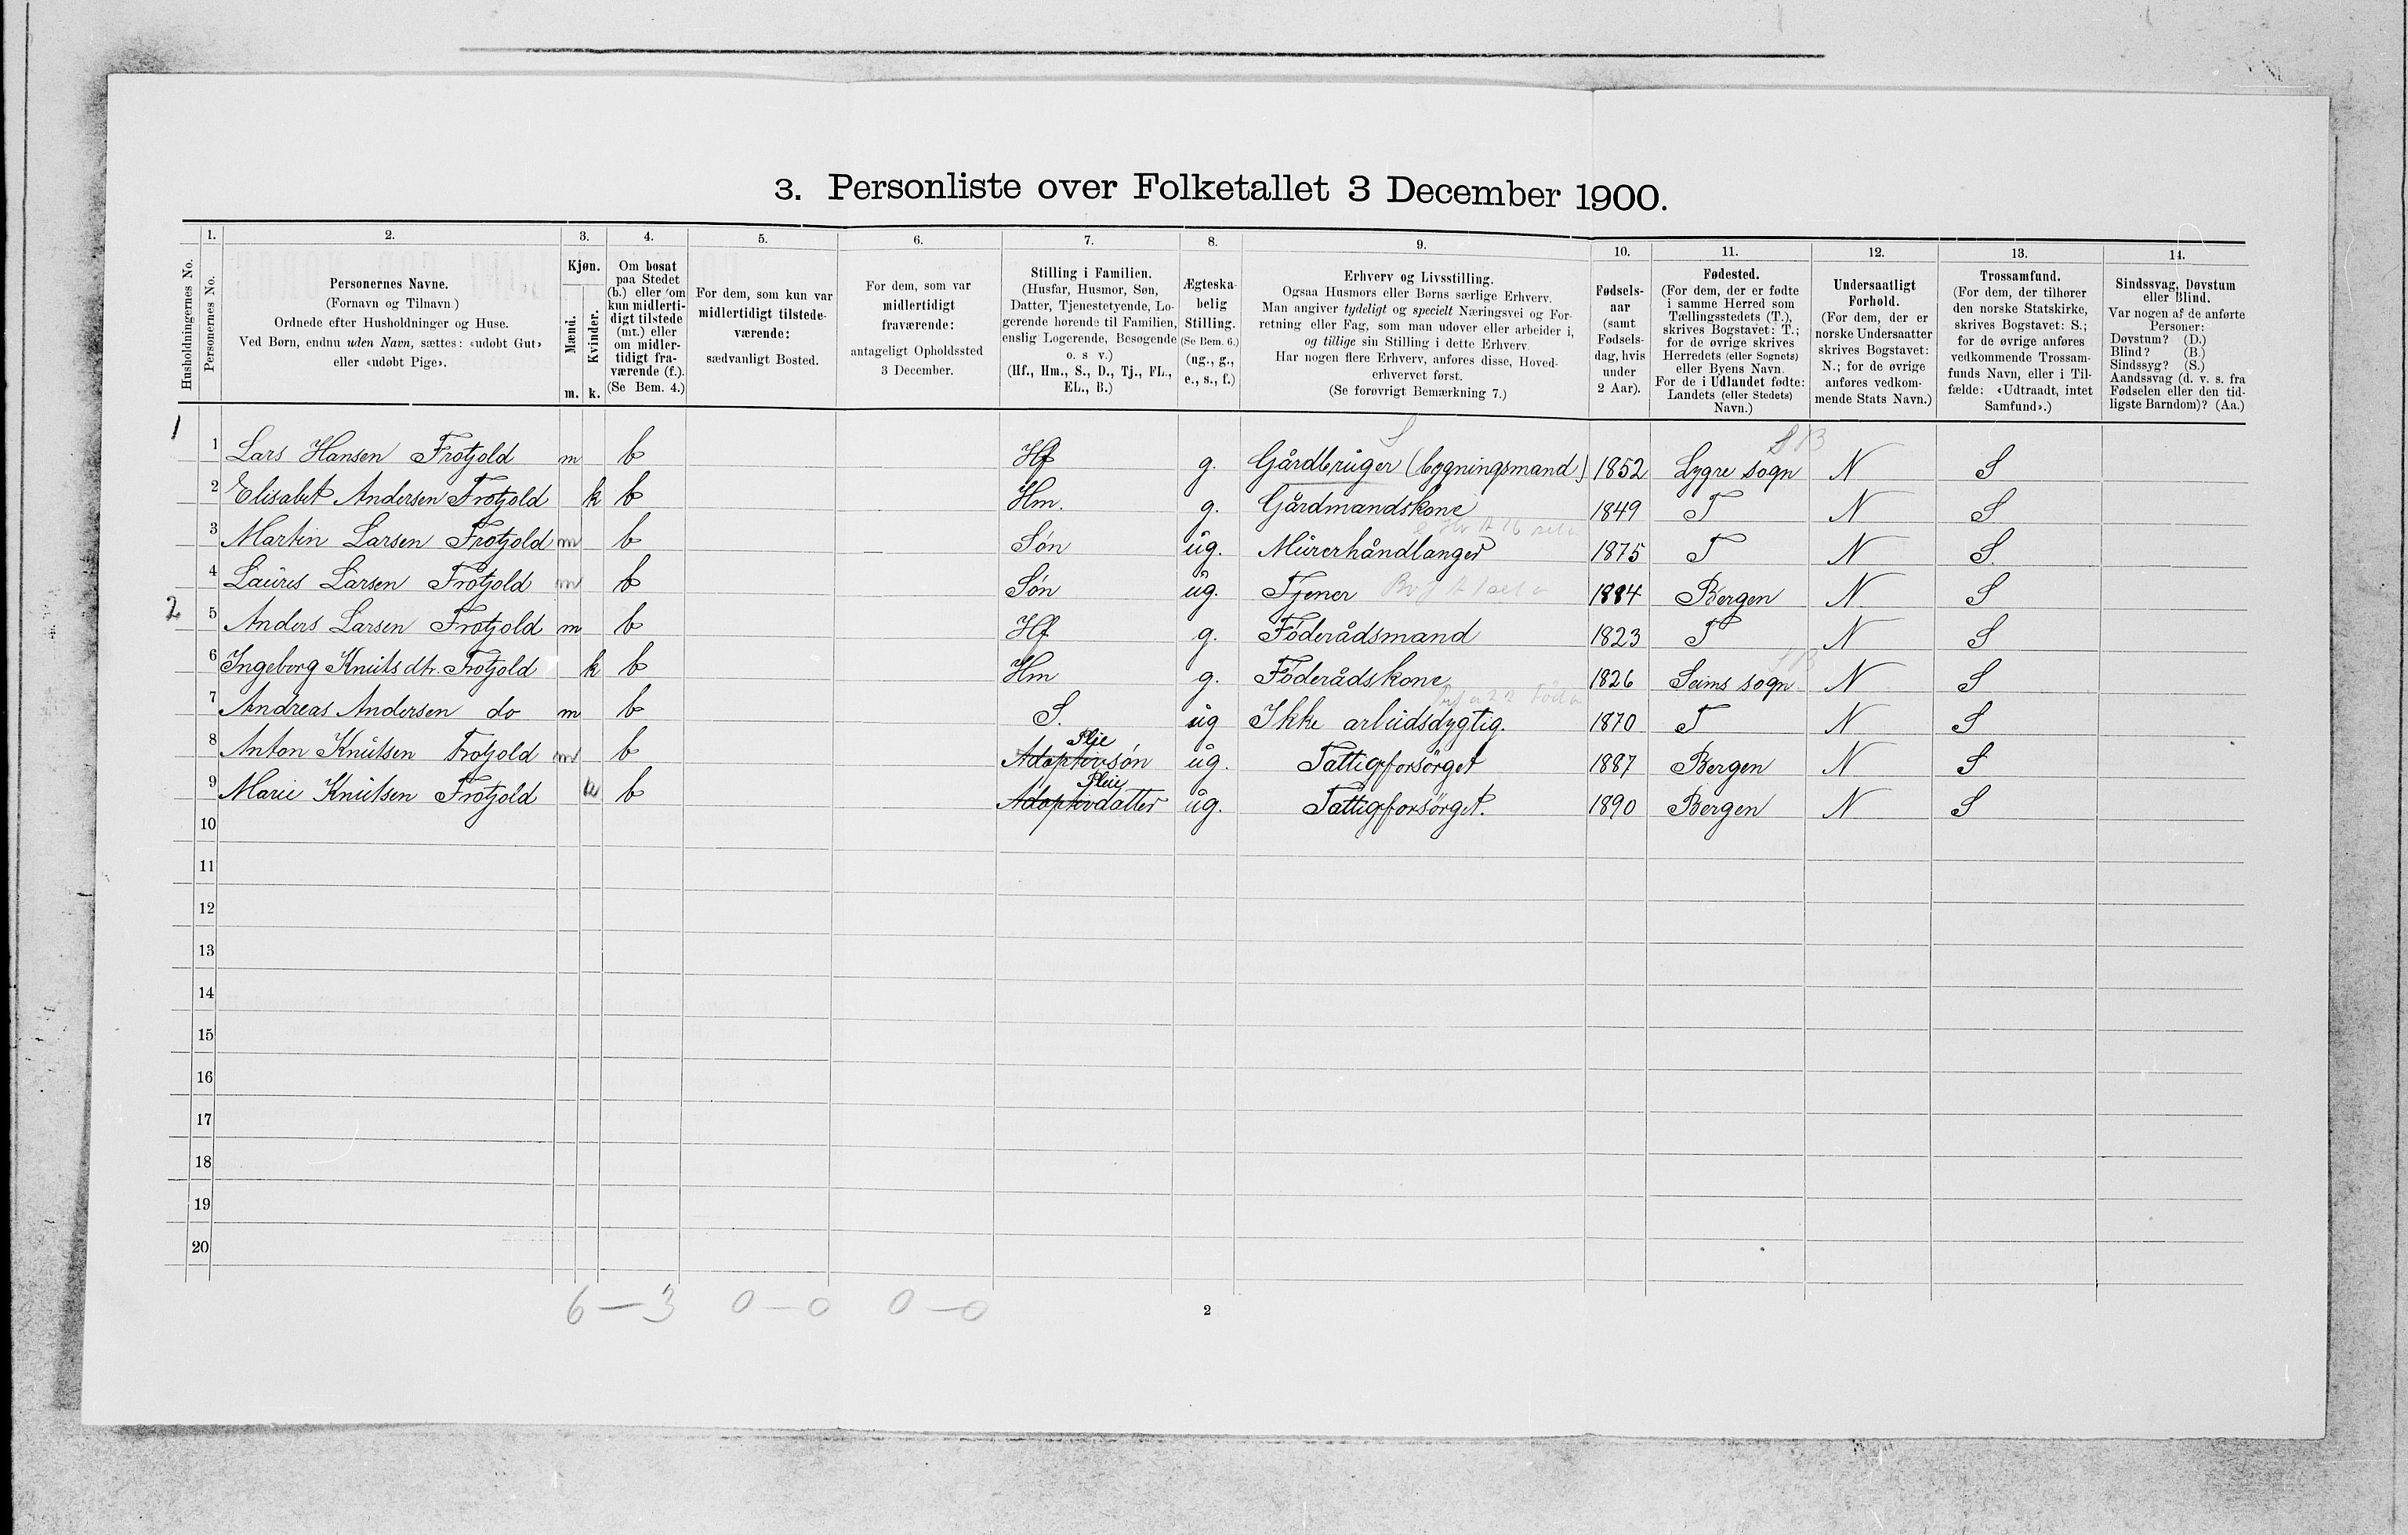 3. Personliste over Folketallet 3 December 1900.
1. 2. 3. 4. 5. 6. 7. 8. 9. 10. 11. 12. 13. 14.
Husholdningernes No.
Personernes No.
Personernes Navne.
(Fornavn og Tilnavn)
Ordnede efter Husholdninger og Huse.
Ved Børn, endnu uden Navn, sættes: «udøbt Gut»
eller «udøbt Pige».
Kjøn.
Mænd.
Kvinder.
m. k.
Om bosat
paa Stedet
(b.) eller om
kun midlerti-
digt tilstede
(mt.) eller
om midler-
tidigt fra-
værende (f.).
(Se Bem. 4.)
For dem, som kun var
midlertidigt tilstede-
værende:
sædvanligt Bosted.
For dem, som var
midlertidigt
fraværende:
antageligt Opholdssted
3 December.
Stilling i Familien.
(Husfar, Husmor, Søn,
Datter, Tjenestetyende, Lo-
gerende hørende til Familien,
enslig Logerende, Besøgende
o. s v.)
(Hf., Hm., S., D., Tj., FL.,
EL., B.)
Ægteska-
belig
Stilling.
(Se Bem. 6.)
(ug., g.,
e., s., f.)
Erhverv og Livsstilling.
Ogsaa Husmors eller Børns særlige Erhverv.
Man angiver tydeligt og specielt Næringsvei og For-
retning eller Fag, som man udøver eller arbeider i,
og tillige sin Stilling i dette Erhverv.
Har nogen flere Erhverv, anføres disse, Hoved-
erhvervet først.
(Se forøvrigt Bemærkning 7.)
Fødsels-
aar
(samt
Fødsels-
dag, hvis
under
2 Aar).
Fødested.
(For dem, der er fødte
i samme Herred som
Tællingsstedets (T.),
skrives Bogstavet: T.;
for de øvrige skrives
Herredets (eller Sognets)
eller Byens Navn.
For de i Udlandet fødte:
Landets (eller Stedets)
Navn.)
Undersaatligt
Forhold.
(For dem, der er
norske Undersaatter
skrives Bogstavet:
N.; for de øvrige
anføres vedkom-
mende Stats Navn.)
Trossamfund.
(For dem, der tilhører
den norske Statskirke,
skrives Bogstavet: S.;
for de øvrige anføres
vedkommende Trossam-
funds Navn, eller i Til-
fælde: «Udtraadt, intet
Samfund».)
Sindssvag, Døvstum
eller Blind.
Var nogen af de anførte
Personer:
Døvstum? (D.)
Blind? (B.)
Sindssyg? (S.)
Aandssvag (d. v. s. fra
Fødselen eller den tid-
ligste Barndom)? (Aa.)
S SB
1 1 Lars Hansen Frotjold m b Hf g. Gårdbruger (bygningsmand) 1852 Lygre sogn N S
2 Elisabet Andersen Frotjold k b Hm. g. Gårdmandskone 1849 T N S
3 Martin Larsen Frotjold m b Søn ug. Murerhåndlanger 1875 T N S.
4 Lauris Larsen Frotjold m b Søn ug. Tjener 1884 Bergen N S
2 5 Anders Larsen Frotjold m b Hf g. Föderådsmand 1823 T N S
SB
6 Ingeborg Knutsdtr. Frotjold k b Hm g. Föderådskone 1826 Seims sogn N S
7 Andreas Andersen do m b S. ug Ikke arbeidsdygtig. 1870 T N S
Plje
8 Anton Knutsen Frotjold m b Adoptivsøn ug. Fattigforsörget 1887 Bergen N S
Pleie
9 Marie Knutsen Frotjold k b Adoptivdatter ug. Fattigforsörget. 1890 Bergen N S
10
11
12
13
14
15
16
17
18
19
20
6 — 3 0 — 0 0 — 0
2